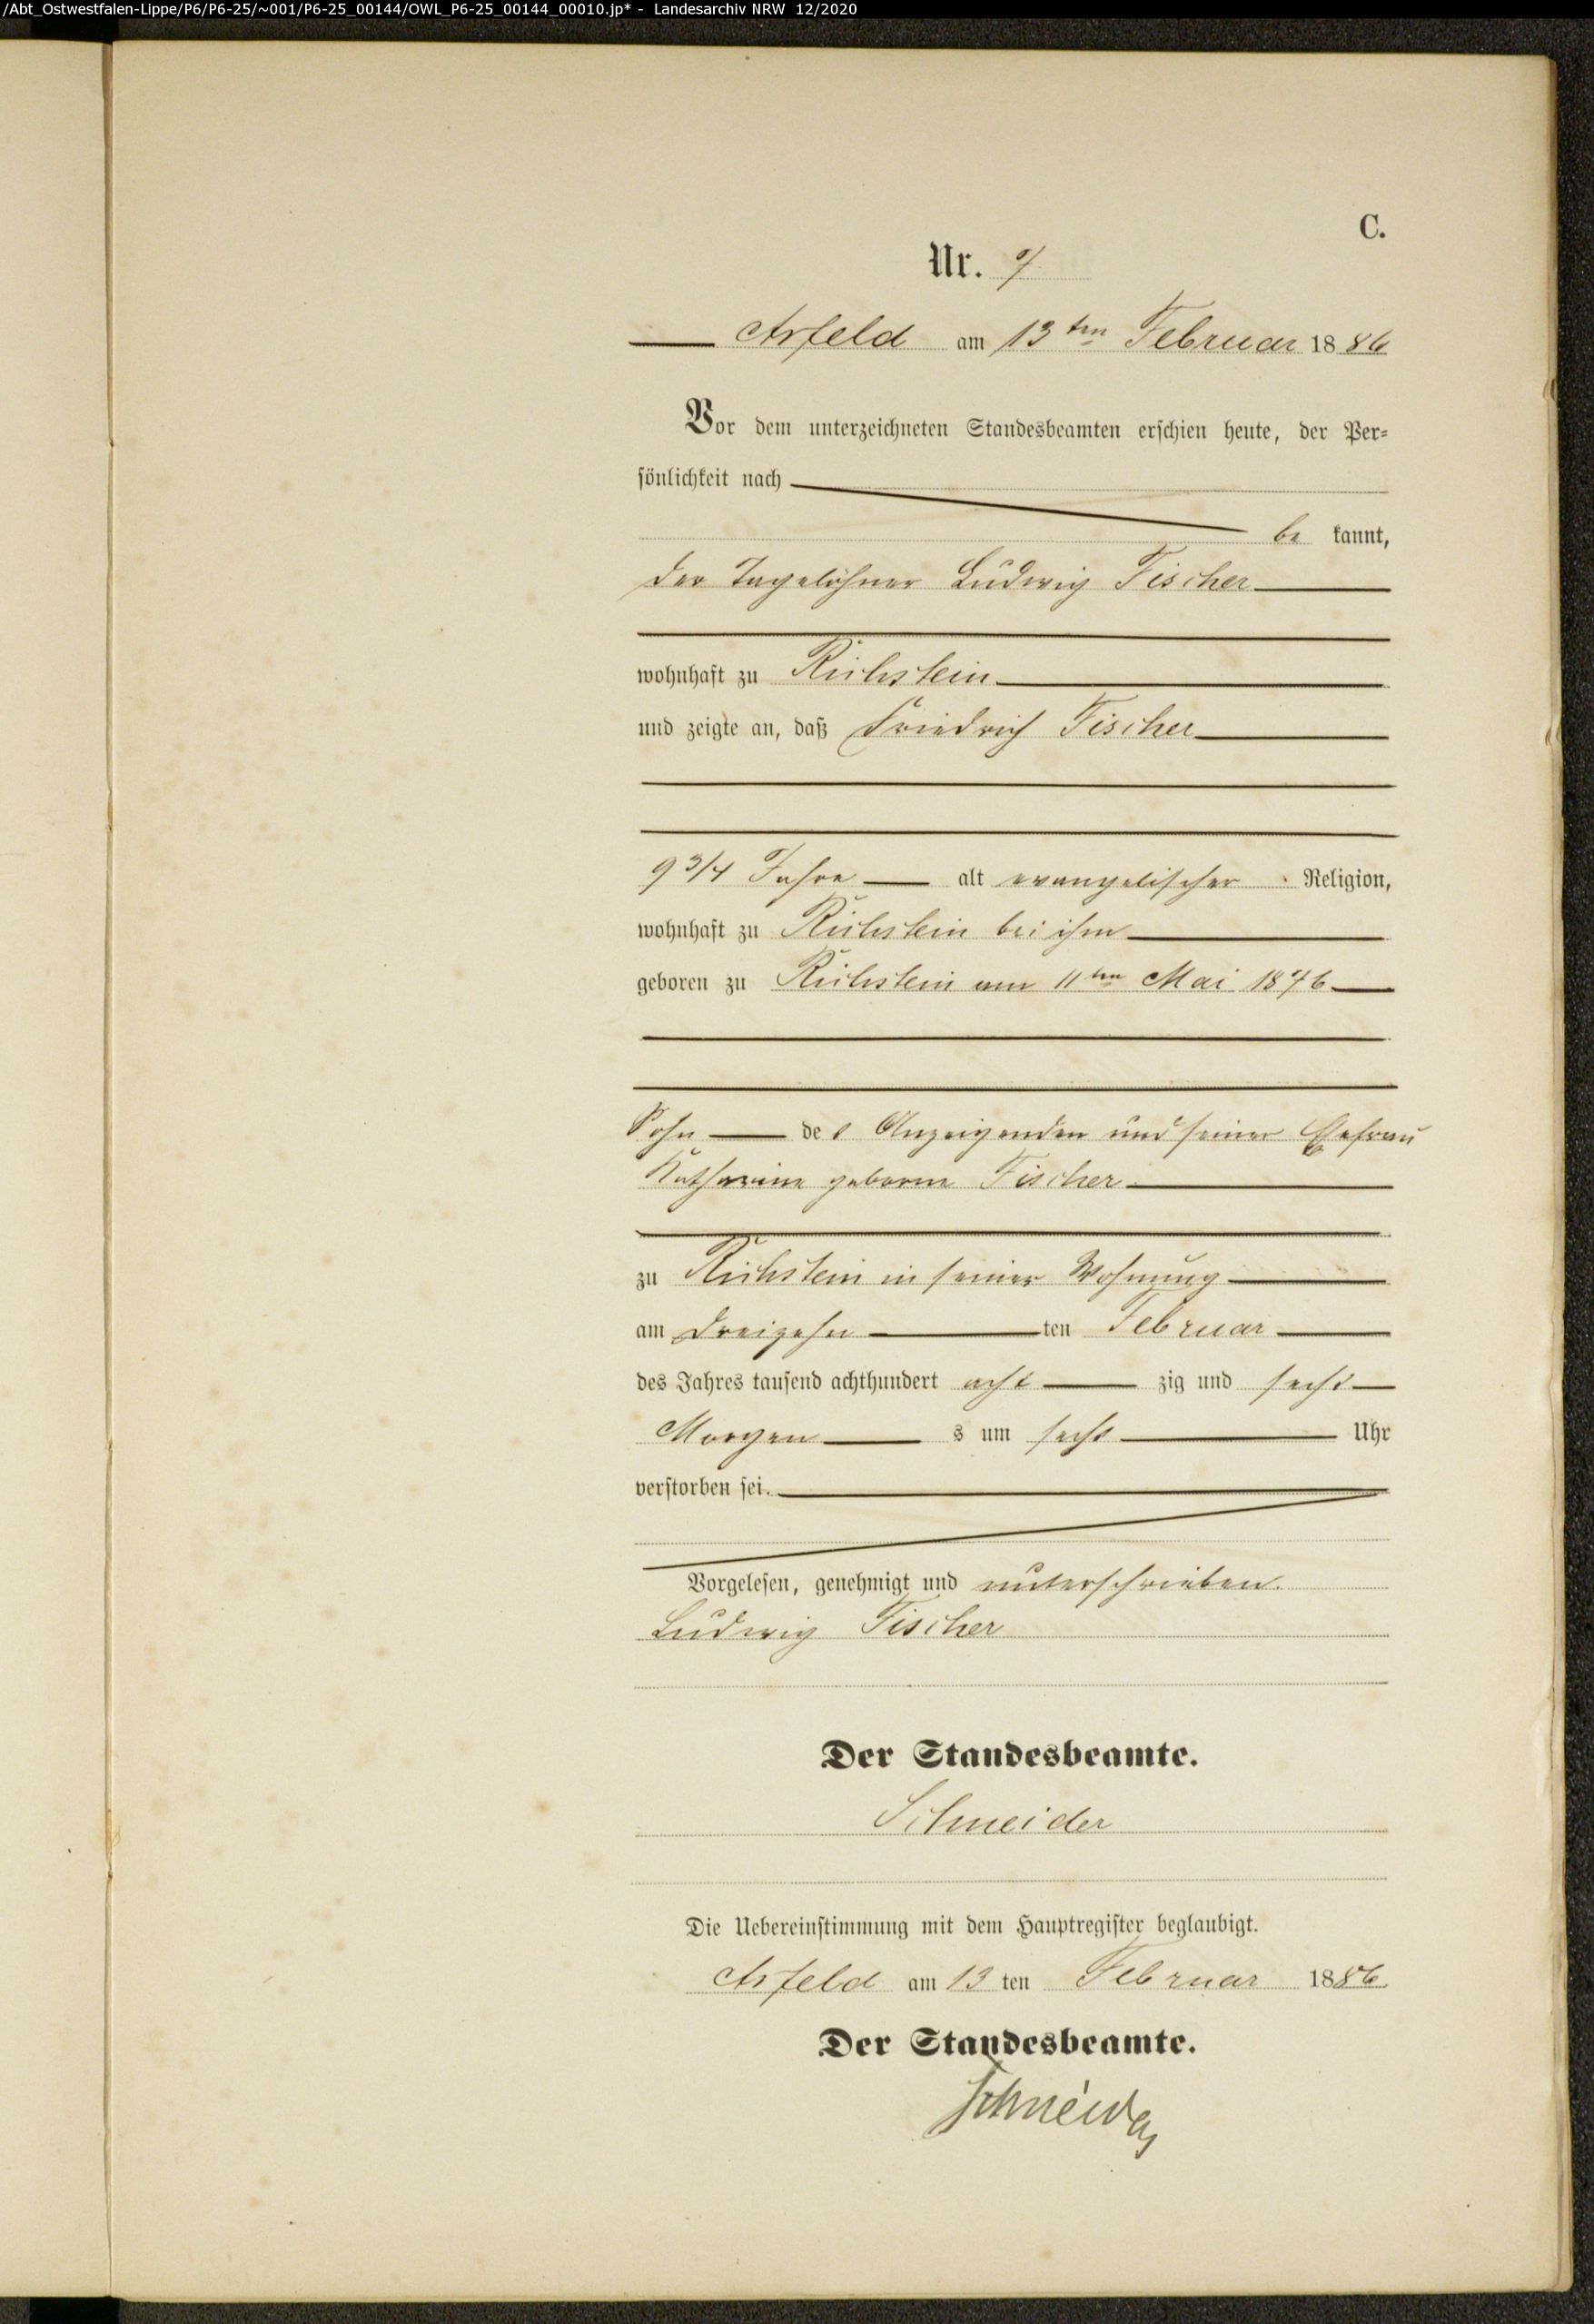 /Abt_Ostwestfalen-Lippe/P6/P6-25/~001/P6-25_00144/OWL_P6-25_00144_00010.jp* - Landesarchiv NRW 12/2020
C.
Nr. 7
Arfeld am 13ten Februar 1886
Vor dem unterzeichneten Standesbeamten erschien heute, der Per-
sönlichkeit nach
be kannt,
der Tagelöhner Ludwig Fischer
wohnhaft zu Richstein
und zeigte an, daß Friedrich Fischer
9 3/4 Jahre alt evangelischer Religion,
wohnhaft zu Richstein bei ihm
geboren zu Richstein am 11ten Mai 1876
Sohn des Anzeigenden und seiner Ehefrau
Katharine geborne Fischer
zu Richstein in seiner Wohnung
am dreizehn ten Februar
des Jahres tausend achthundert acht zig und sechs
Morgen s um sechs Uhr
verstorben sei.
Vorgelesen, genehmigt und unterschrieben.
Ludwig Fischer
Der Standesbeamte.
Schneider
Die Uebereinstimmung mit dem Hauptregister beglaubigt.
Arfeld am 13 ten Februar 1886
Der Standesbeamte.
Schneider